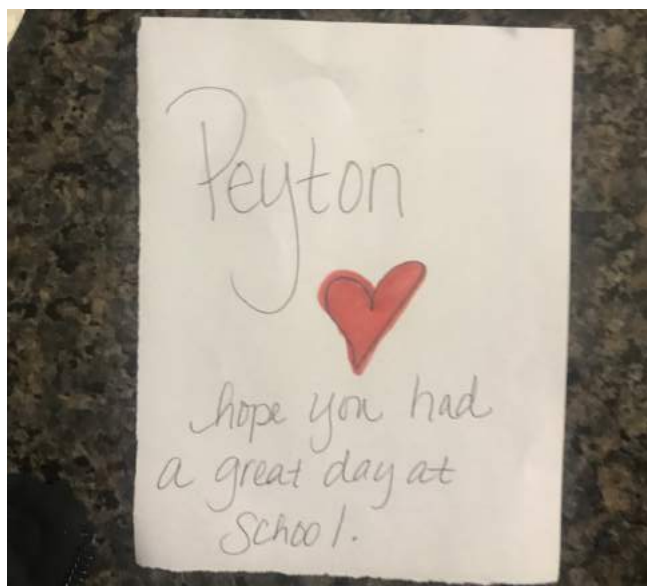 Peyton
hope you had
a great day at
school.